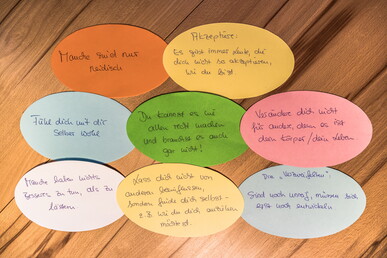 Manche sind nur
neidisch
Akzeptiere:
Es gibt immer Leute, die
dich nicht so akzeptieren,
wie du bist
Fühl dich mit dir
selber wohl
Du kannst es nie
allen recht machen
und brauchst es auch
gar nicht!
Verändere dich nicht
für andere, denn es ist
dein Körper / dein Leben.
Manche haben nichts
besseres zu tun, als zu
lästern
Lass dich nicht von
anderen beeinflussen,
sondern finde dich selbst
z.B. wie du dich
möchtest.
Die
Sind noch unreif, müssen sich
erst noch entwickeln